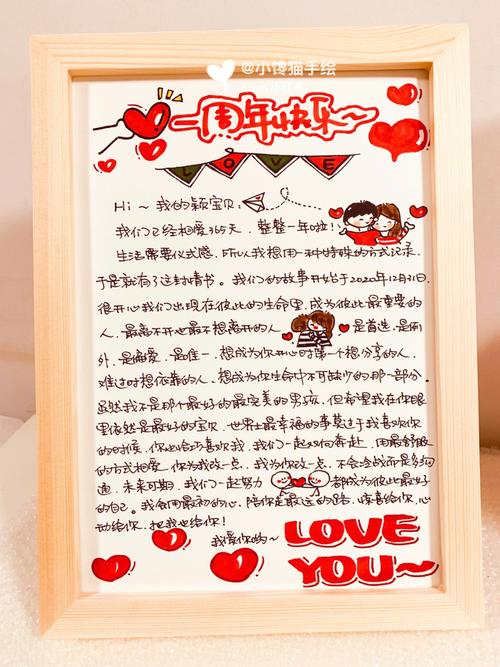 @小馋猫手绘
一周年快乐~
LOVE
Hi ~ 我的颖宝贝:
我们已经相爱365天, 整整一年啦!
生活需要仪式感. 所以我想用一种特殊的方式记录,
于是就有了这封情书。我们的故事开始于2020年12月31日,
很开心我们出现在彼此的生命里. 成为彼此最重要的
人. 最离不开也最不想离开的人 是首选. 是例
外. 是偏爱. 是唯一. 想成为你开心时第一个想分享的人.
难过时想依靠的人. 想成为你生命中不可缺少的那一部分.
虽然我不是那个最好的最完美的男孩. 但希望我在你眼
里依然是最好的宝贝. 世界上最幸福的事莫过于我喜欢你
的时候. 你也恰巧喜欢我. 我们一起双向奔赴. 用最舒服
的方式相爱. 你为我改一点. 我为你改一点. 不会冷战而是多沟
通. 未来可期. 我们一起努力 都成为彼此最好
的自己。我会用最初的心. 陪你走最远的路. 惊喜给你. 心
动给你. 把我也给你!
我爱你哟~
LOVE
YOU~